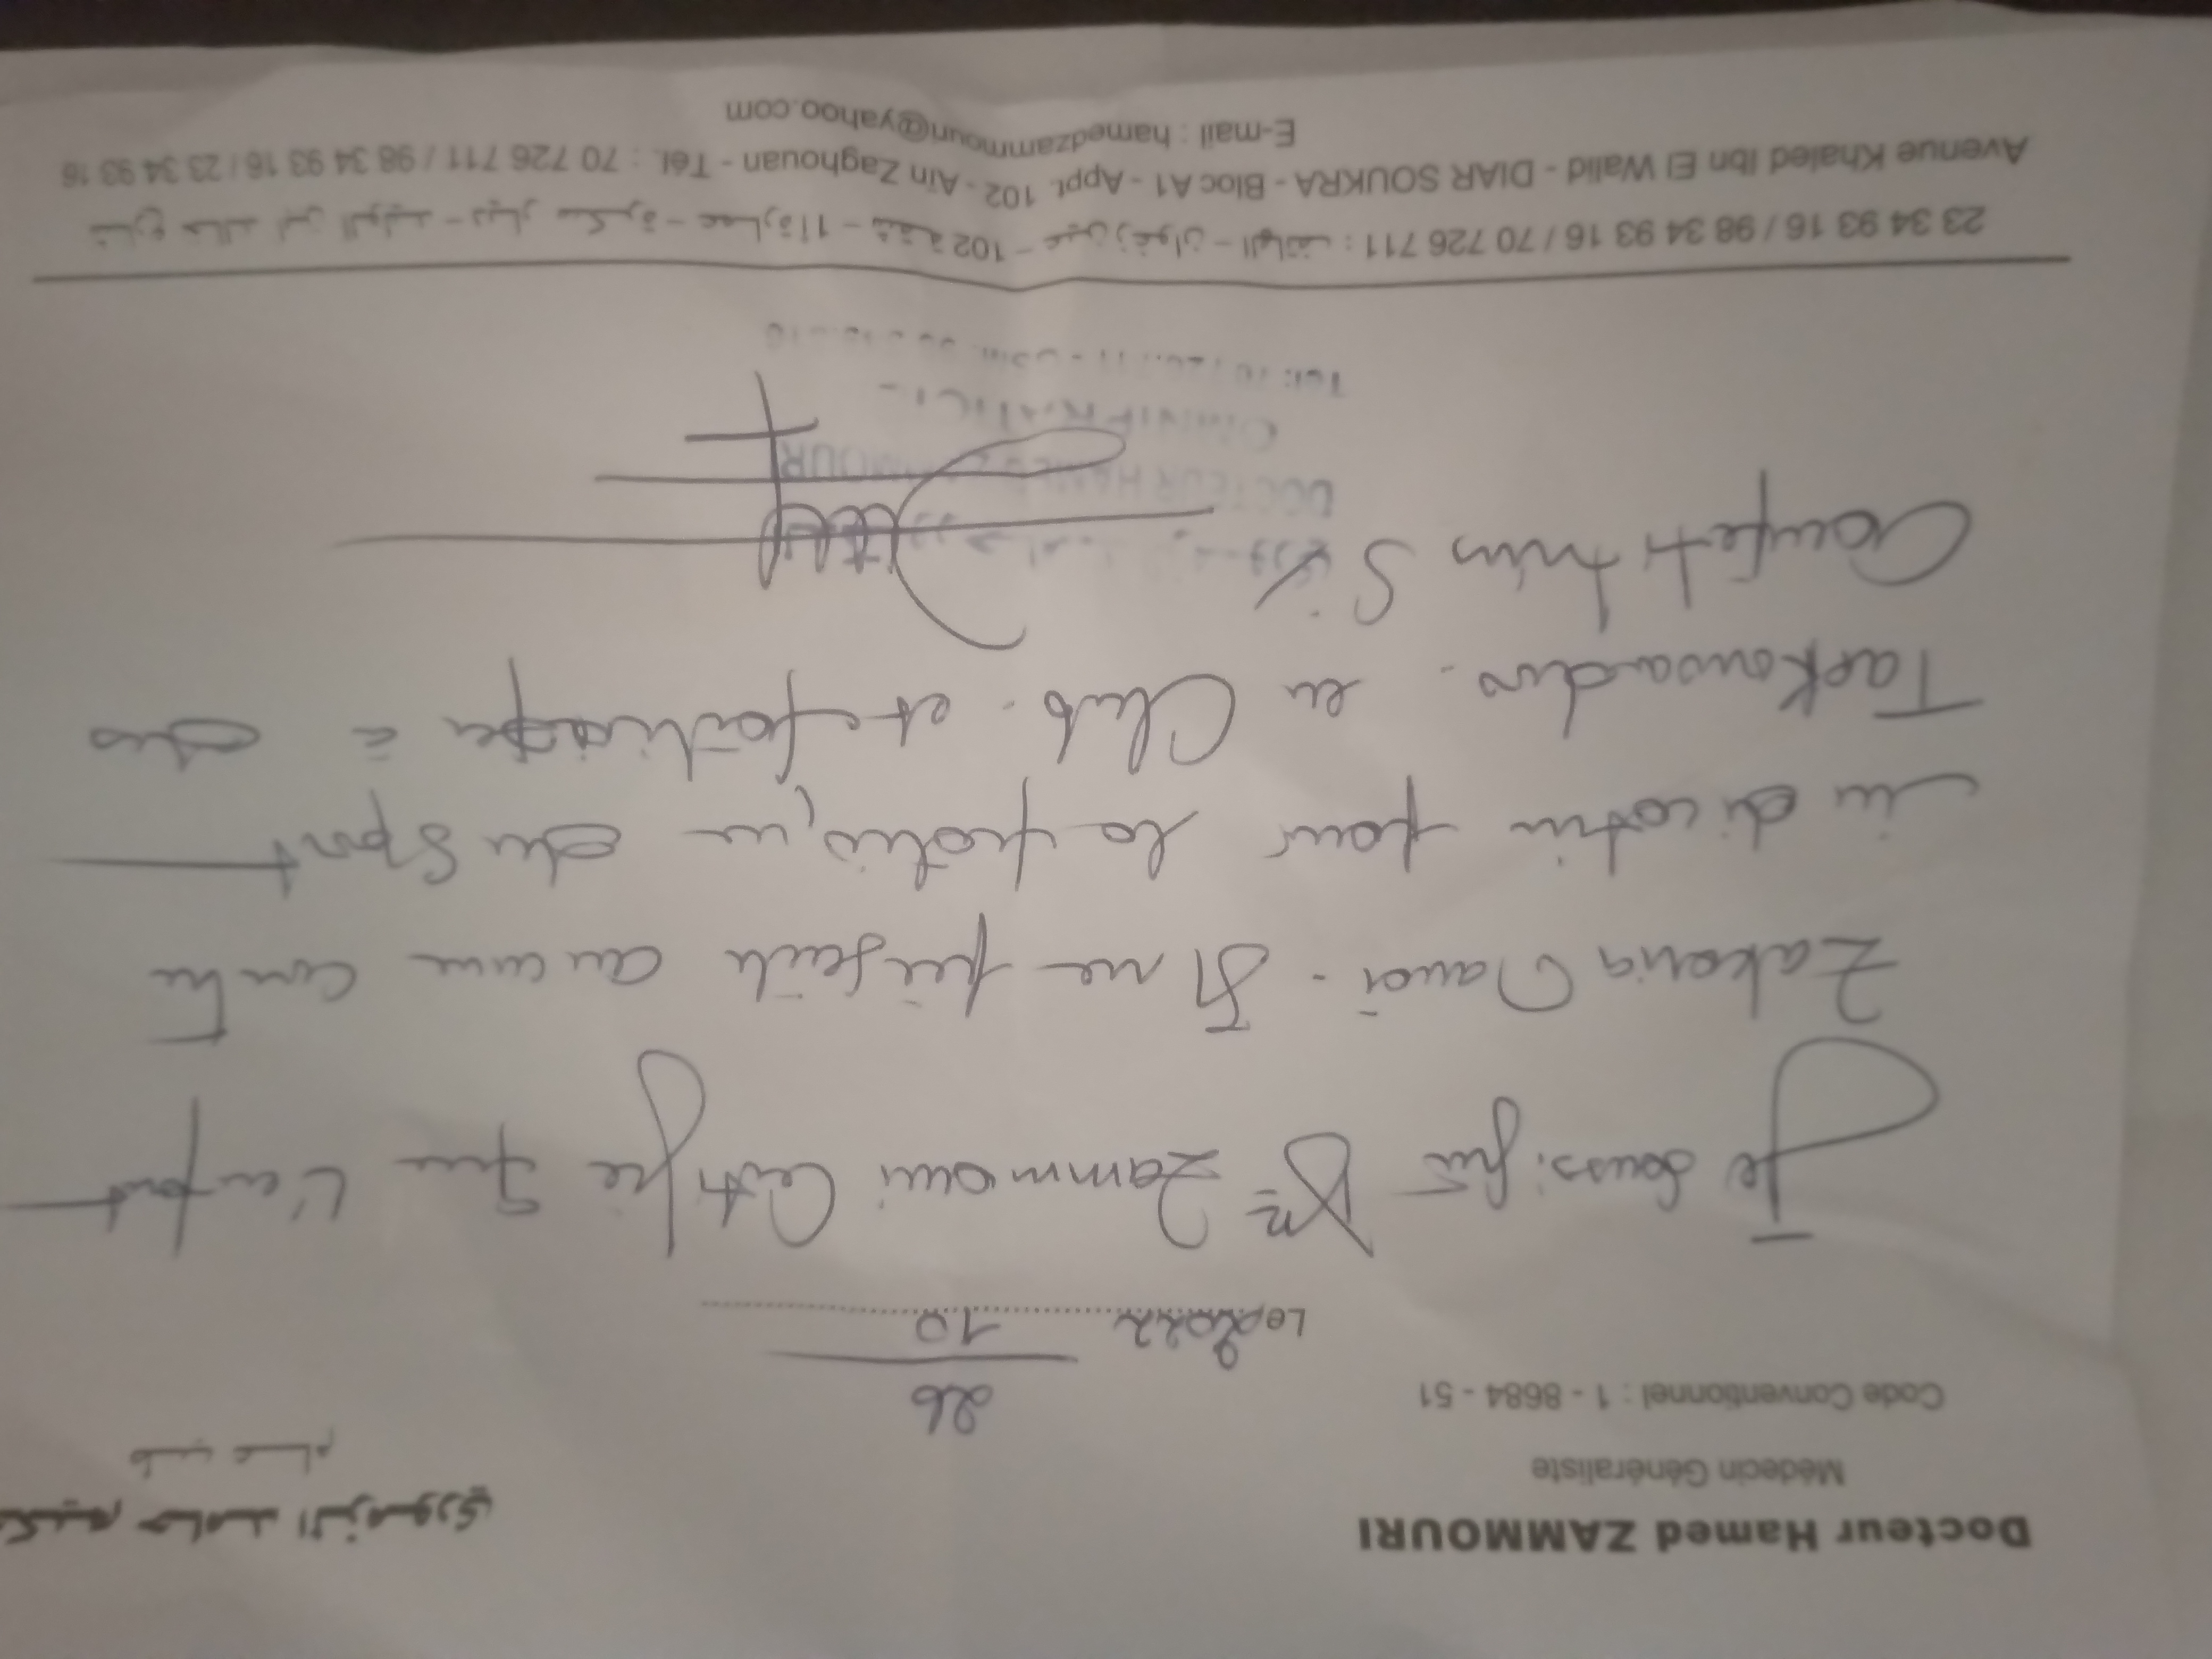 Docteur Hamed ZAMMOURI
حكيم حامد الزموري
Médecin Généraliste
طب عام
Code Conventionnel : 1 - 8684 - 51
26
Le 2022 10
Je soussigné Dr Zammouri Certifie que l'enfant
Zakaria ne présente aucune contre
indication pour la pratique du Sport
Taekwondo en Club et participer à des
Compétitions
DOCTEUR HAMED ZAMMOURI
OMNIPRATICIEN
شارع خالد ابن الوليد - ديار سكرة - عمارة 1أ - شقة 102 - عين زغوان - الهاتف : 711 726 70 / 16 93 34 98 / 16 93 34 23
Avenue Khaled Ibn El Walid - DIAR SOUKRA - Bloc A1 - Appt. 102 - Aïn Zaghouan - Tél. : 70 726 711 / 98 34 93 16 / 23 34 93 16
E-mail : hamedzammouri@yahoo.com